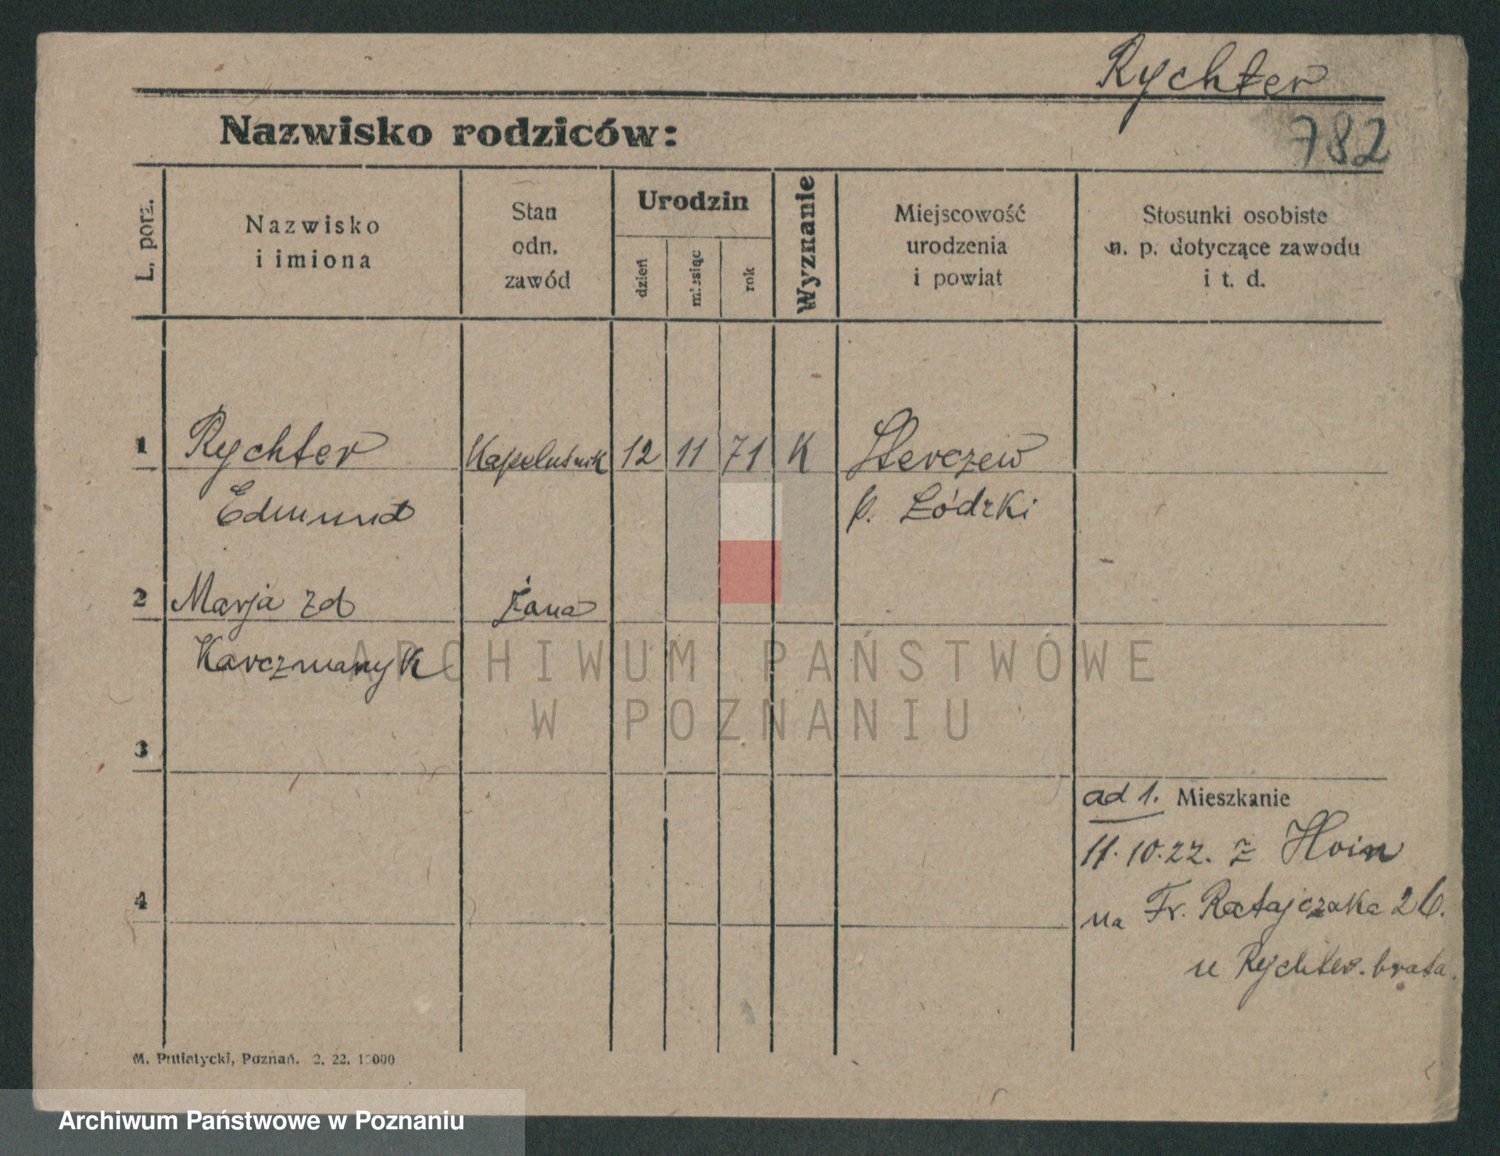 Rychter
782
Nazwisko rodziców:
L. porz.
Nazwisko
i imiona
Stan
odn.
zawód
Urodzin
dzień
miesiąc
rok
Wyznanie
Miejscowość
urodzenia
i powiat
Stosunki osobiste
n. p. dotyczące zawodu
i t. d.
1 Rychter Kapelusnik 12 11 71 K Sterczew
Edmund p. Łódzki
2 Marja zd Żona
Karczmaryk
3
ad 1. Mieszkanie
11.10.22. z
4
na Fr. Ratajczaka 26.
u Rychter. brata.
M. Putiatycki, Poznań. 2. 22.
ARCHIWUM PAŃSTWOWE
W POZNANIU
Archiwum Państwowe w Poznaniu